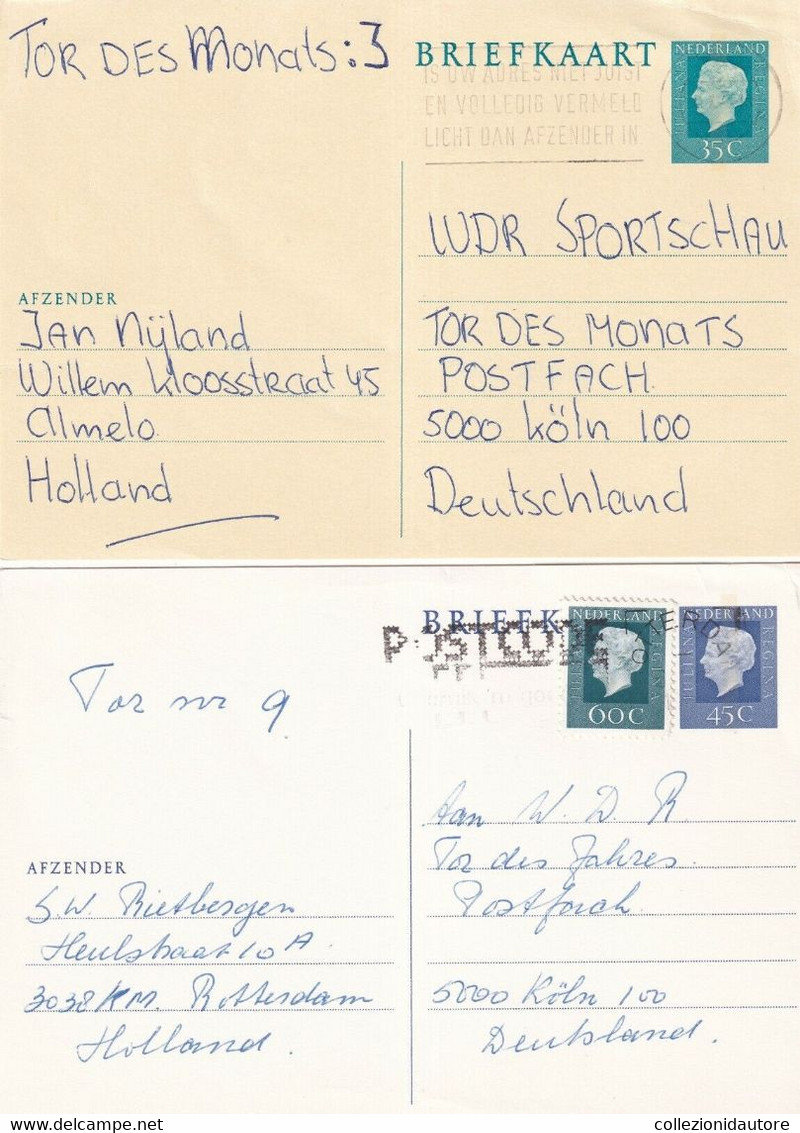 TOR DES Monats: 3
BRIEFKAART
NEDERLAND
JULIANA REGINA
35 C
IS UW ADRES NIET JUIST
EN VOLLEDIG VERMELD
LICHT DAN AFZENDER IN
WDR SPORTSCHAU
TOR DES MONATS
POSTFACH
5000 Köln 100
Deutschland
AFZENDER
Jan Nijland
Willem Kloosstraat 45
Almelo
Holland
BRIEFK
POSTCODE
NEDERLAND
JULIANA REGINA
60 C
NEDERLAND
JULIANA REGINA
45 C
Tor nr 9
Aan W. D. R
Tor des Jahres.
Postfach
5000 Köln 100
Deutsland.
AFZENDER
S.W. Rietbergen
Heulstraat 10 A.
3038 KM. Rotterdam
Holland.
www.delcampe.net
collezionidautore